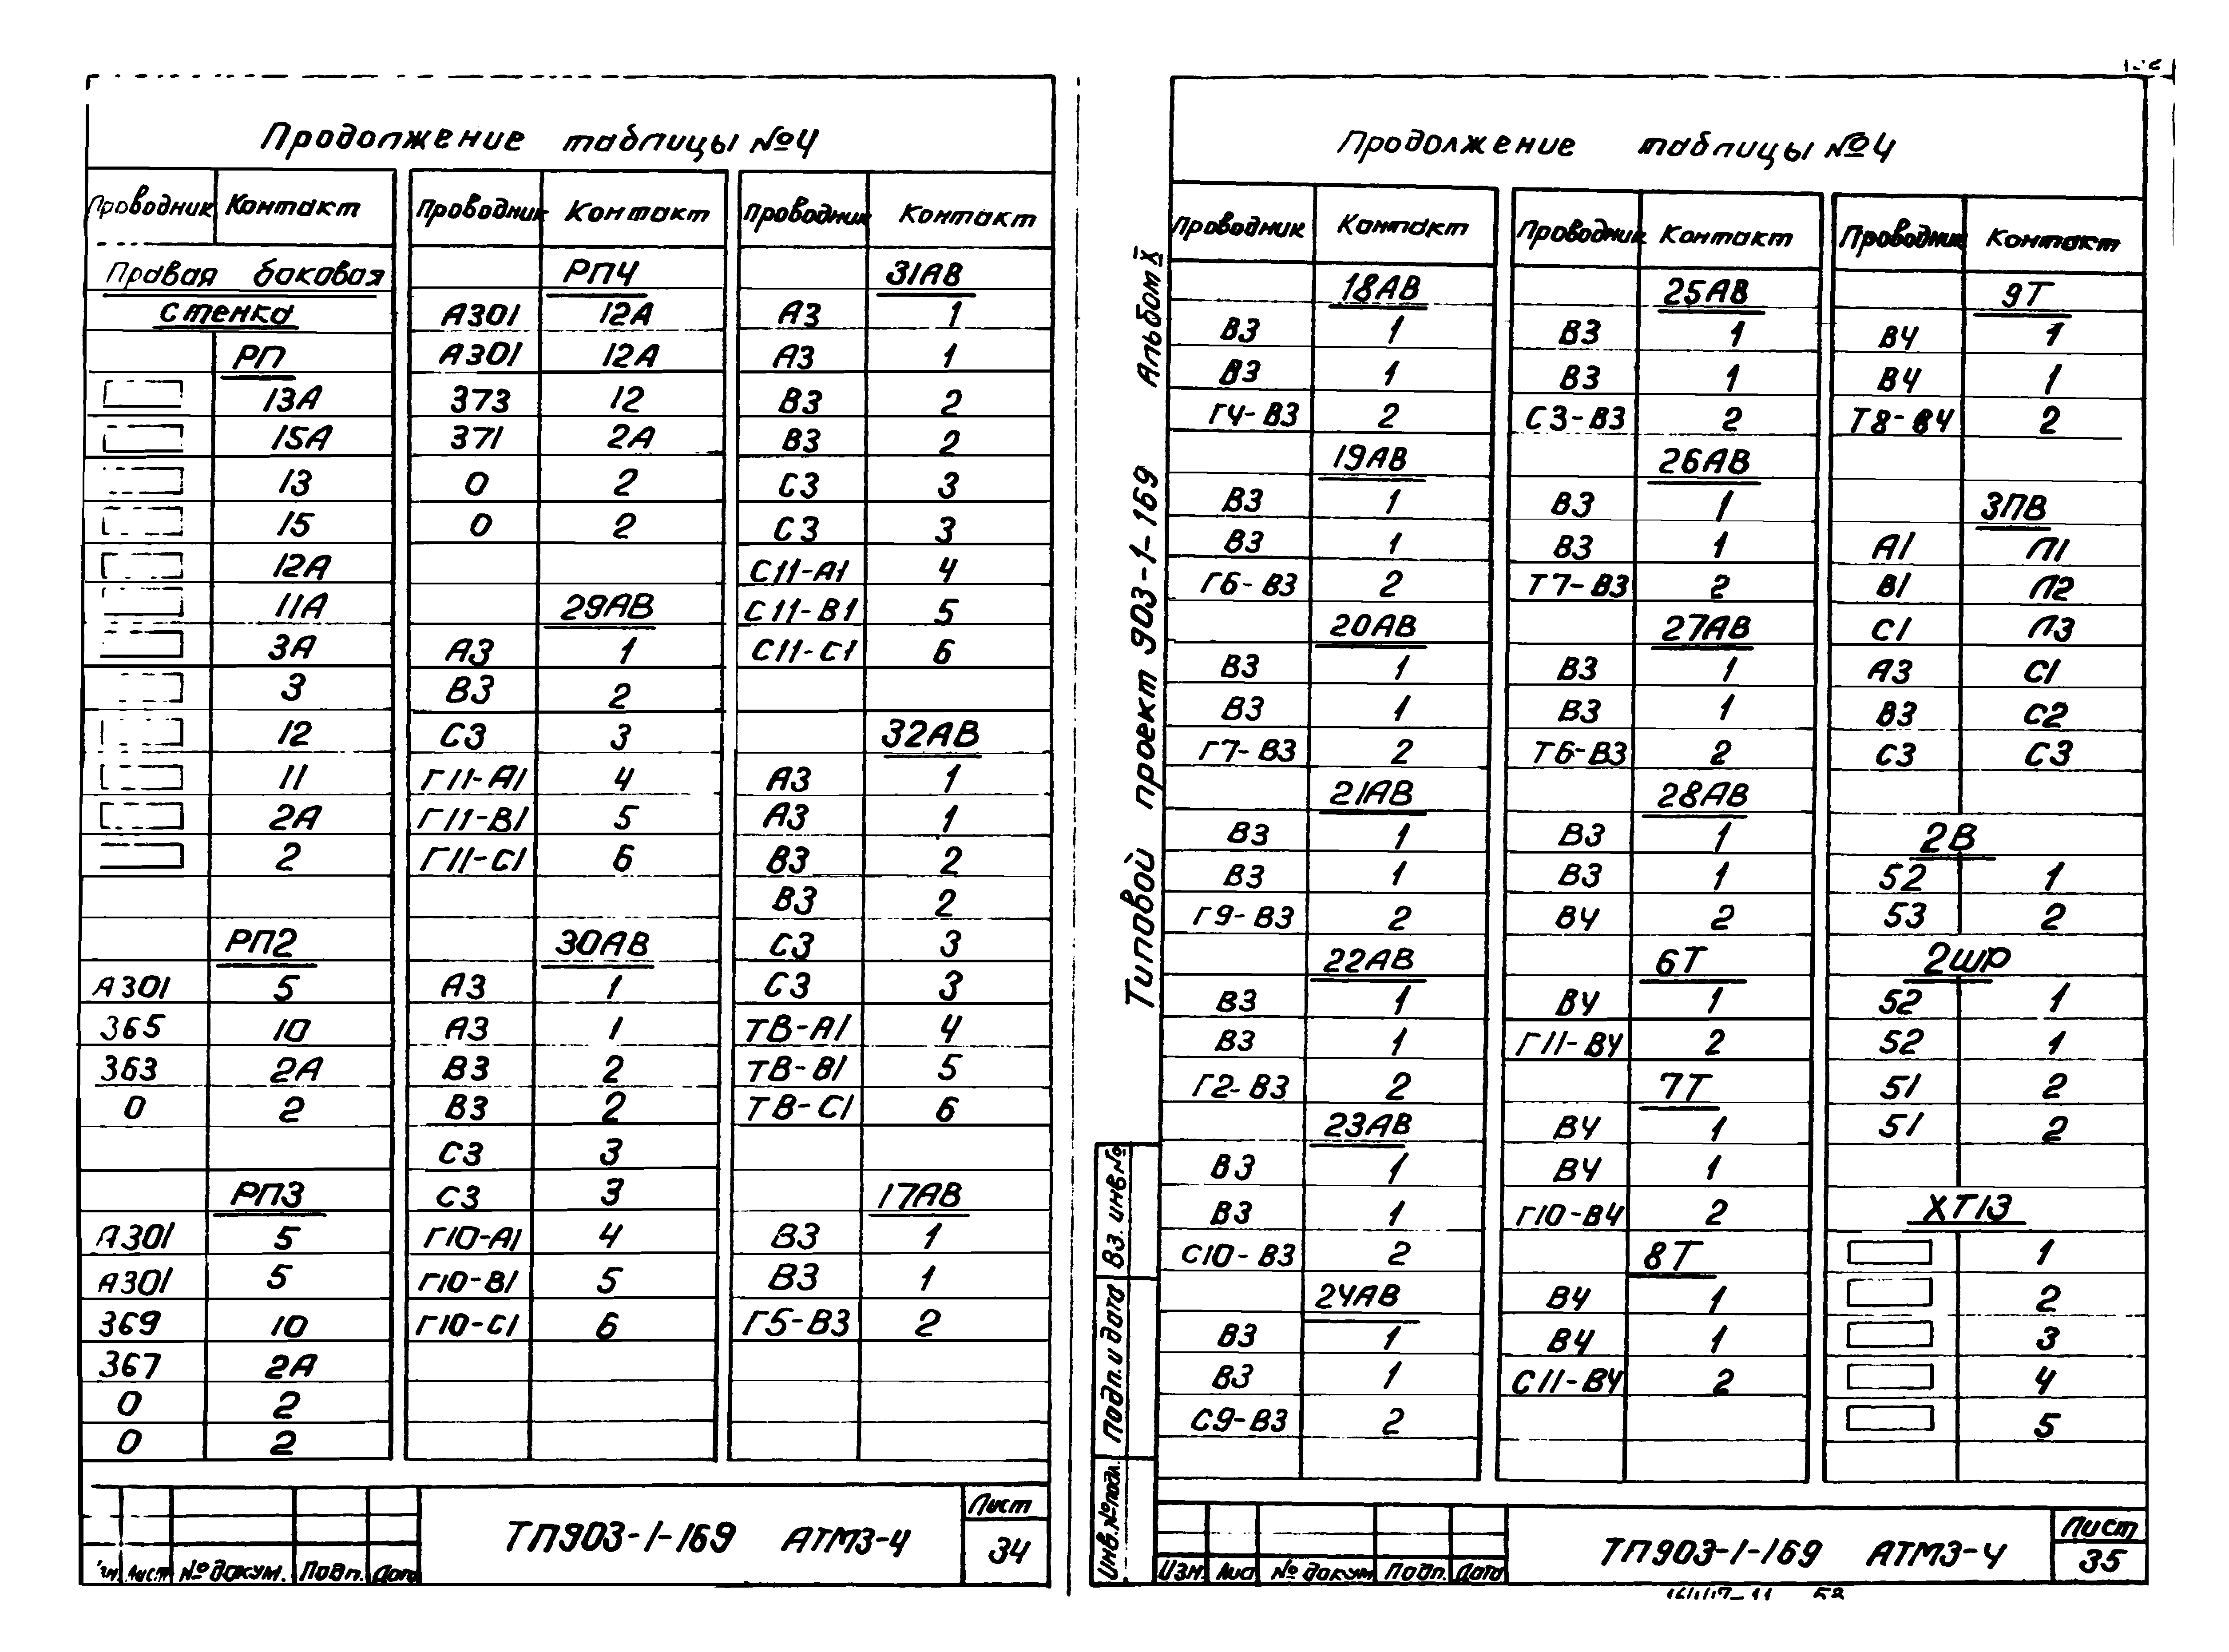 Продолжение таблицы №4
Проводник Контакт
Правая боковая
стенка
РП
13А
15А
13
15
12А
11А
3А
3
12
11
2А
2
РП2
А301 5
365 10
363 2А
0 2
РП3
А301 5
А301 5
369 10
367 2А
0 2
0 2
Проводник Контакт
РП4
А301 12А
А301 12А
373 12
371 2А
0 2
0 2
29АВ
А3 1
В3 2
С3 3
Г11-А1 4
Г11-В1 5
Г11-С1 6
30АВ
А3 1
А3 1
В3 2
В3 2
С3 3
С3 3
Г10-А1 4
Г10-В1 5
Г10-С1 6
Проводник Контакт
31АВ
А3 1
А3 1
В3 2
В3 2
С3 3
С3 3
С11-А1 4
С11-В1 5
С11-С1 6
32АВ
А3 1
А3 1
В3 2
В3 2
С3 3
С3 3
ТВ-А1 4
ТВ-В1 5
ТВ-С1 6
17АВ
В3 1
В3 1
Г5-В3 2
Лист
ТП903-1-169 АТМ3-4
34
Лист № докум. Подп. Дата
Типовой проект 903-1-169 Альбом X
Вз. инв.№
Подп. и дата
Инв.№ подл.
Продолжение таблицы №4
Проводник Контакт
18АВ
В3 1
В3 1
Г4-В3 2
19АВ
В3 1
В3 1
Г6-В3 2
20АВ
В3 1
В3 1
Г7-В3 2
21АВ
В3 1
В3 1
Г9-В3 2
22АВ
В3 1
В3 1
Г2-В3 2
23АВ
В3 1
В3 1
С10-В3 2
24АВ
В3 1
В3 1
С9-В3 2
Проводник Контакт
25АВ
В3 1
В3 1
С3-В3 2
26АВ
В3 1
В3 1
Т7-В3 2
27АВ
В3 1
В3 1
Т6-В3 2
28АВ
В3 1
В3 1
В4 2
6Т
В4 1
Г11-В4 2
7Т
В4 1
В4 1
Г10-В4 2
8Т
В4 1
В4 1
С11-В4 2
Проводник Контакт
9Т
В4 1
В4 1
Т8-В4 2
3ПВ
А1 Л1
В1 Л2
С1 Л3
А3 С1
В3 С2
С3 С3
2В
52 1
53 2
2ШР
52 1
52 1
51 2
51 2
ХТ13
1
2
3
4
5
Лист
ТП903-1-169 АТМ3-4
35
Изм. Лис № докум Подп. Дата